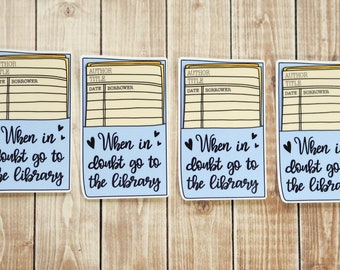 AUTHOR
TITLE
DATE BORROWER
When in
doubt go to
the library
AUTHOR
TITLE
DATE BORROWER
When in
doubt go to
the library
AUTHOR
TITLE
DATE BORROWER
When in
doubt go to
the library
AUTHOR
TITLE
DATE BORROWER
When in
doubt go to
the library